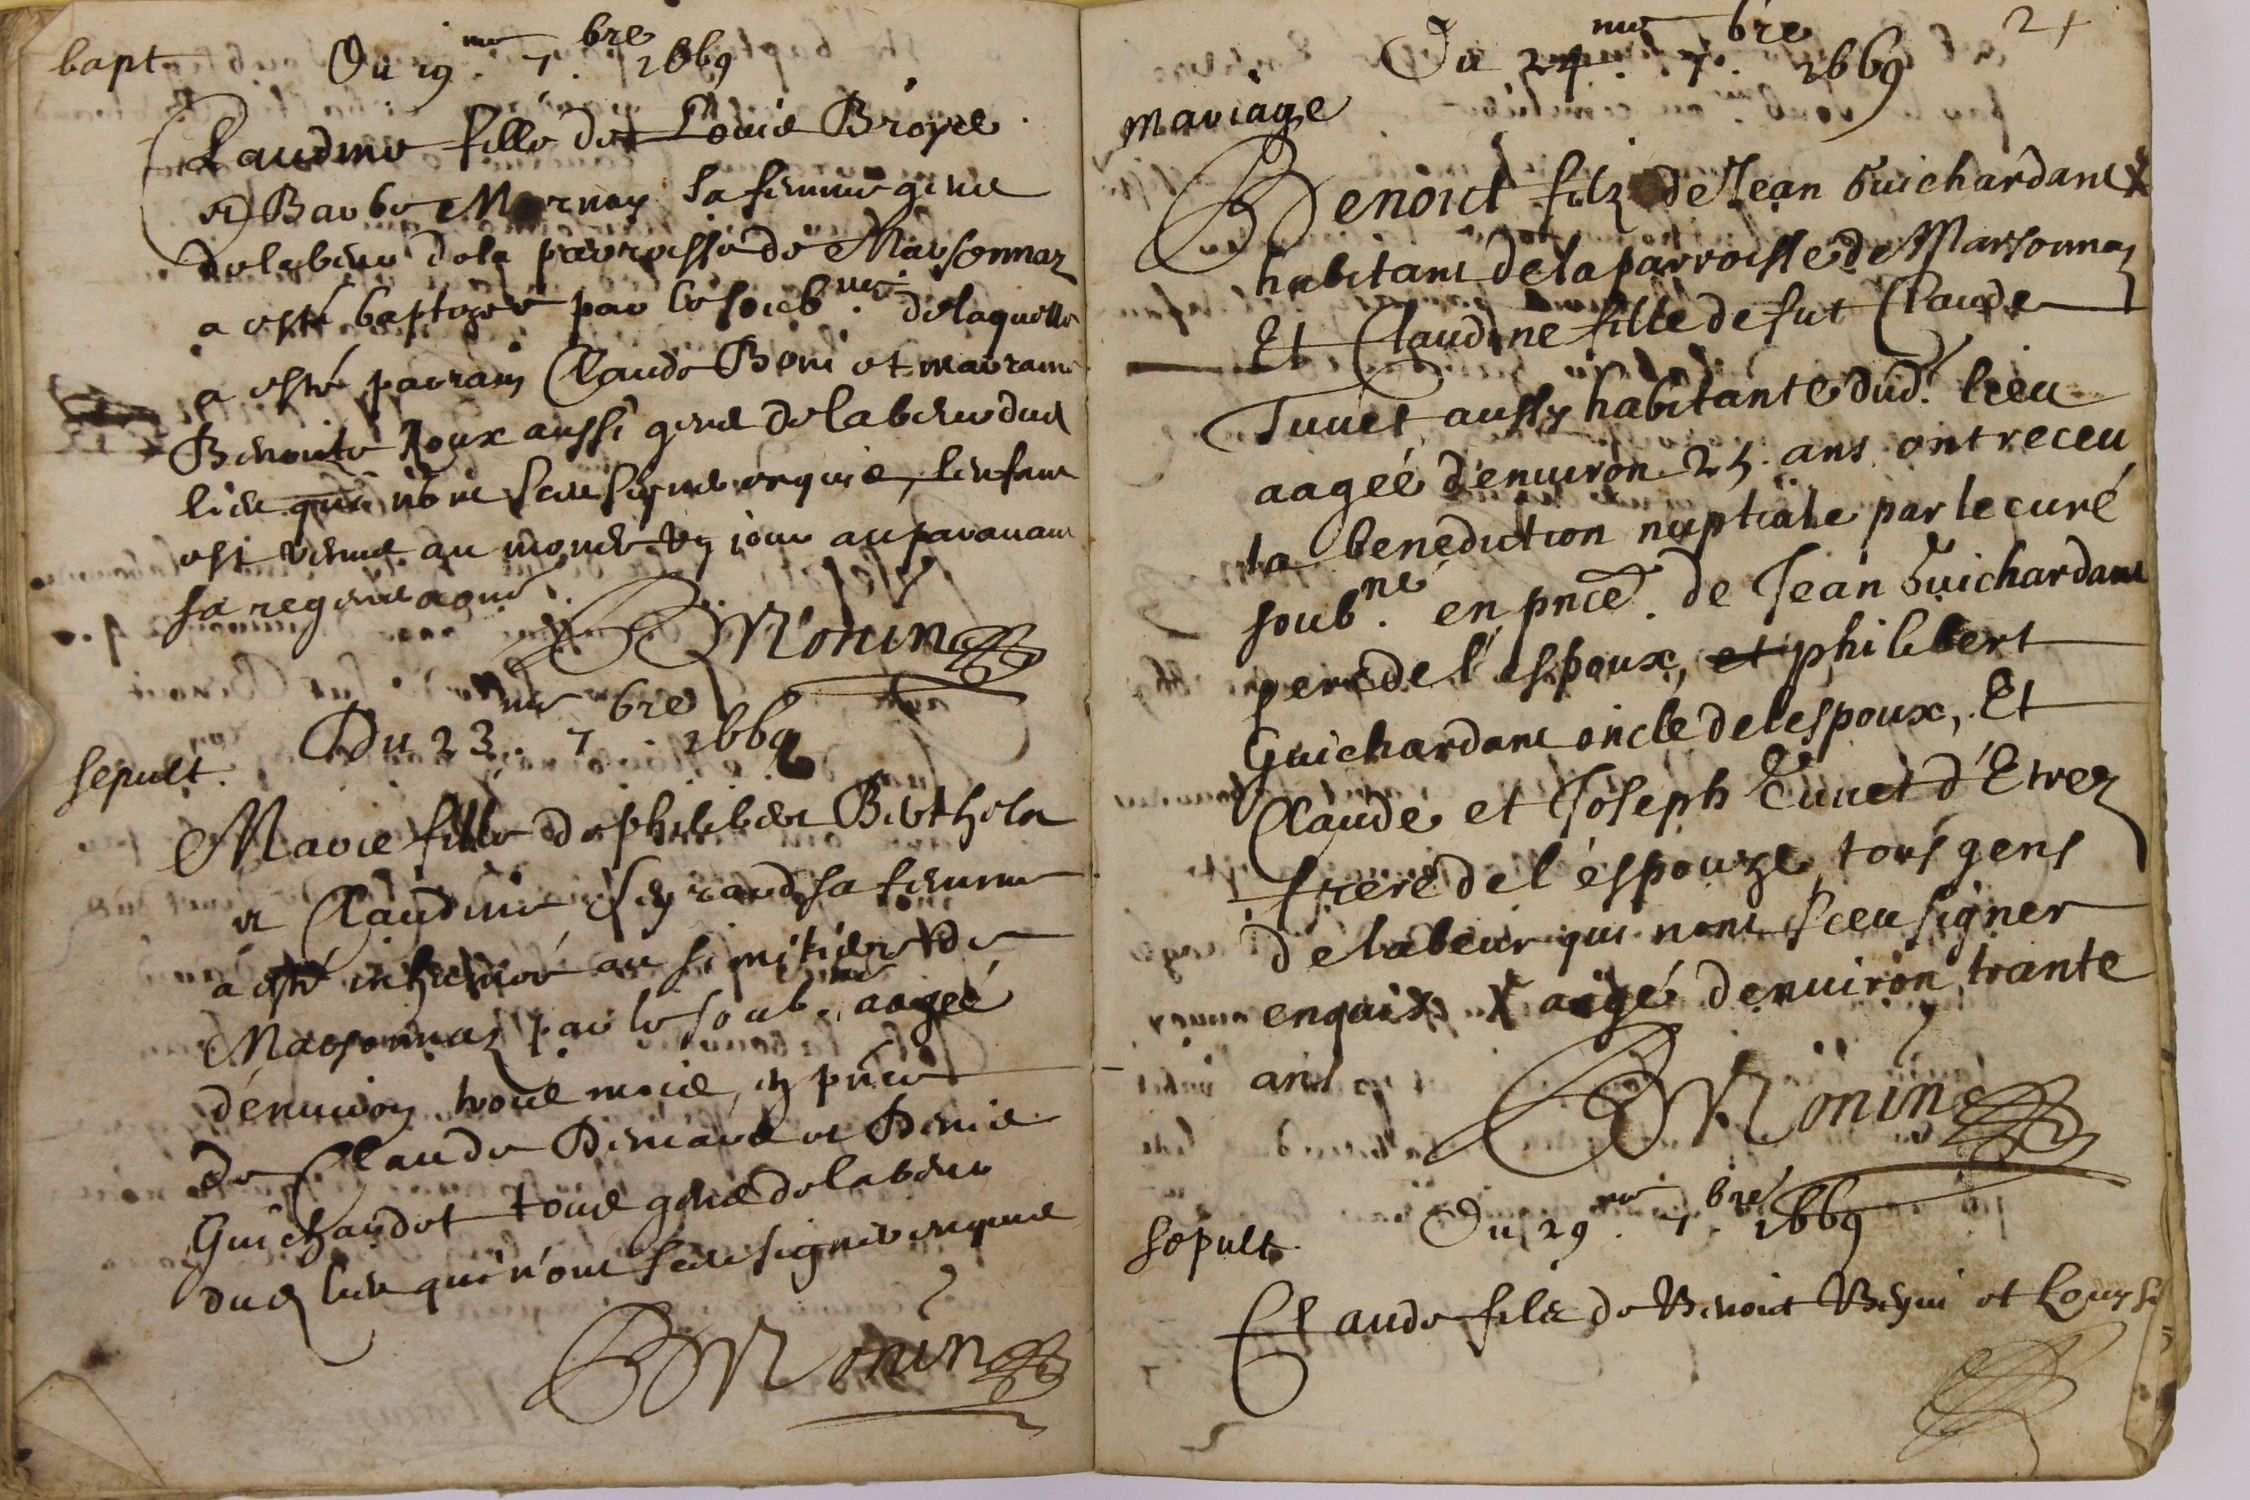 bapt
Du 19.me 7.bre 1669
Claudine fille de Louis Broyes
et Barbe Mornay sa femme gens
de labeur de la parroisse de Marsonnaz
a esté baptizée par le soub.né de laquelle
a esté parrain Claude Boni et marraine
Benoite Roux aussi gens de labeur dud
lieu qui n'ont sceu signer enquis, l'enfant
est venue au monde un jour auparavant
sa
BMonin
sepult.
Du 23.me 7.bre 1669
Marie fille de philibert Berthelon
et Claudine sa femme
a esté inhumé au simitiere de
Marsonnaz par le soub.né aagée
d'environ trois mois, en pnce
de Claude Benard et Denis
Guichardet tous gens de labeur
dud lieu qui n'ont sceu signer enquis
BMonin
21
Du 24.me 7.bre 1669
mariage
Benoict filz de Jean Guichardant X
habitant de la parroisse de Marsonnaz
Et Claudine fille de fut Claude
Tuuet aussy habitante dud. lieu
aagée d'enuiron 25. ans ont receu
la benediction nuptiale par le curé
soub.né en pnce. de Jean Guichardant
pere de l'espoux, et philibert
Guichardant oncle de lespoux, Et
Claude et Joseph Tuuet d'Etrez
frere de l'espouze, tous gens
de labeur qui nont sceu signer
enquis X aagé denuiron trante
ans
BMonin
sepult.
Du 29.me 7.bre 1669
Claude filz de Benoit et Louyse